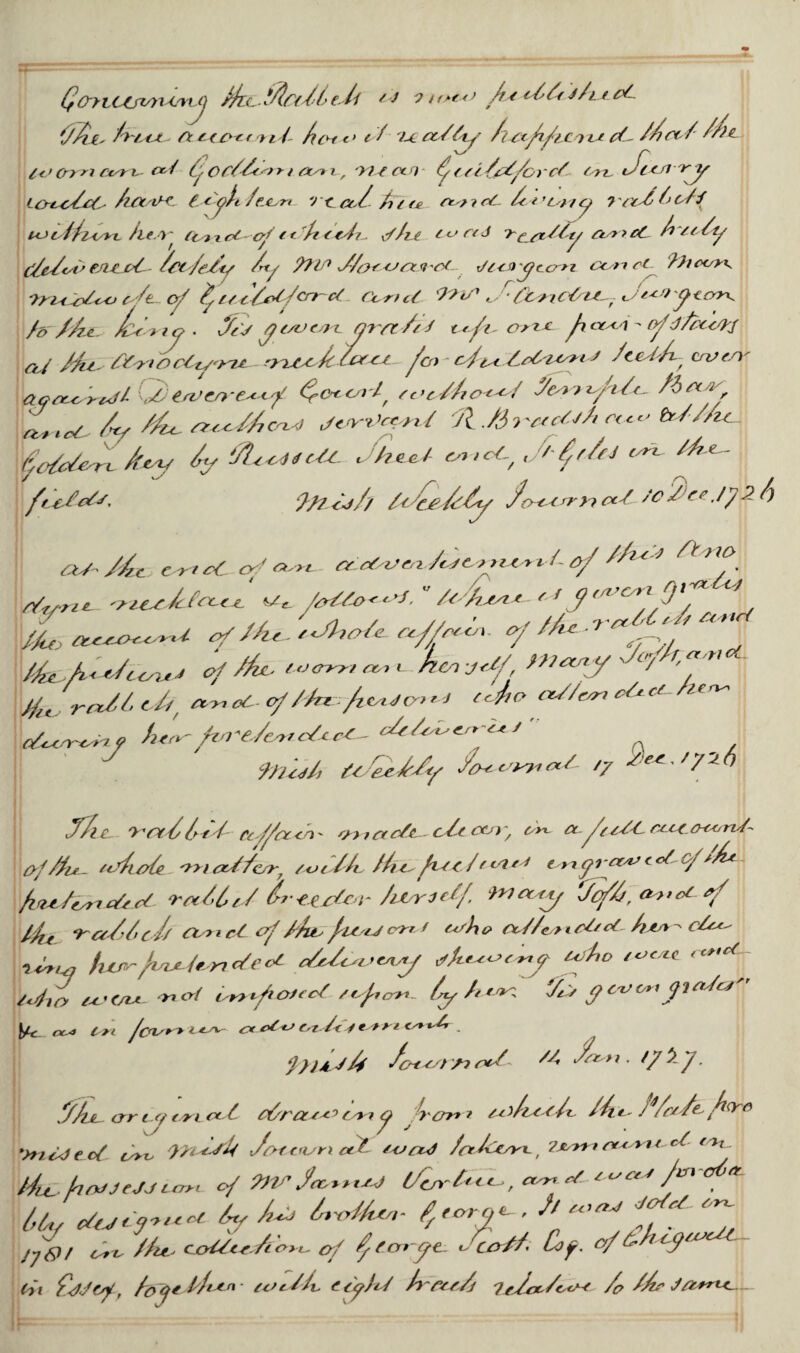 Concerning the Rabbets is now published
The true account how it really happened that the
woman at Godliman, near Guildford in Surry
could have eighteen real live and living rabbits
within her and of which she was really and truly
delivered lately by Mr Howard Surgeon and Man
midwife of Guildford and Mr St Andre, Surgeon
to the King. Is given gratis up one pair of stairs
at the Anodyne necklace for childrens teeth over
against Devereux Court, without Temple Barr,
and by the authors servant R. Bradshaw at the
Golden Key by Russell Street and, St Giles in the
fields. Mists Weekly Journal 10 Dec. 1726
At the end of an advertisement of this Ano
dyne necklace ye follows. "Where is given gratis
the account of the whole affair of the rabbits and
the pictures of the woman herself, Mary Toft, and
the rabbets, and of the persons who attended her
during her pretended deliveries"
Mists Weekly Journal 17 Dec. 1726
The rabbit affair made clear, in a full account
of the whole matter, with the pictures engraved of the
pretended rabbet breeder herself, Mary Toft, and of
the rabbets and of the persons who attended her du-
ring her pretended delivery shewing who were and
who were not imposed upon by her. Is given gratis"
&c as in former advertisement.
Mists Journal 21 Jan. 1727.
The original drawing from which the Plate pro
mised in Mists Journal was taken, remained in
the possession of Mr James Vertue, and was proba
bly designed by his brother George. It was sold in
1781 in the collection of George Scott. Esq. of Chigwell
in Essex, together with eight tracts relative to the same